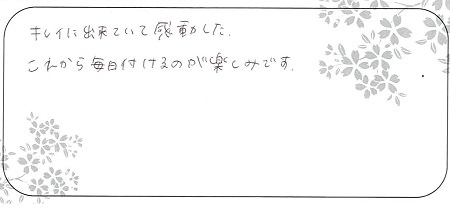 キレイに出来ていて感動した.
これから毎日付けるのが楽しみです.